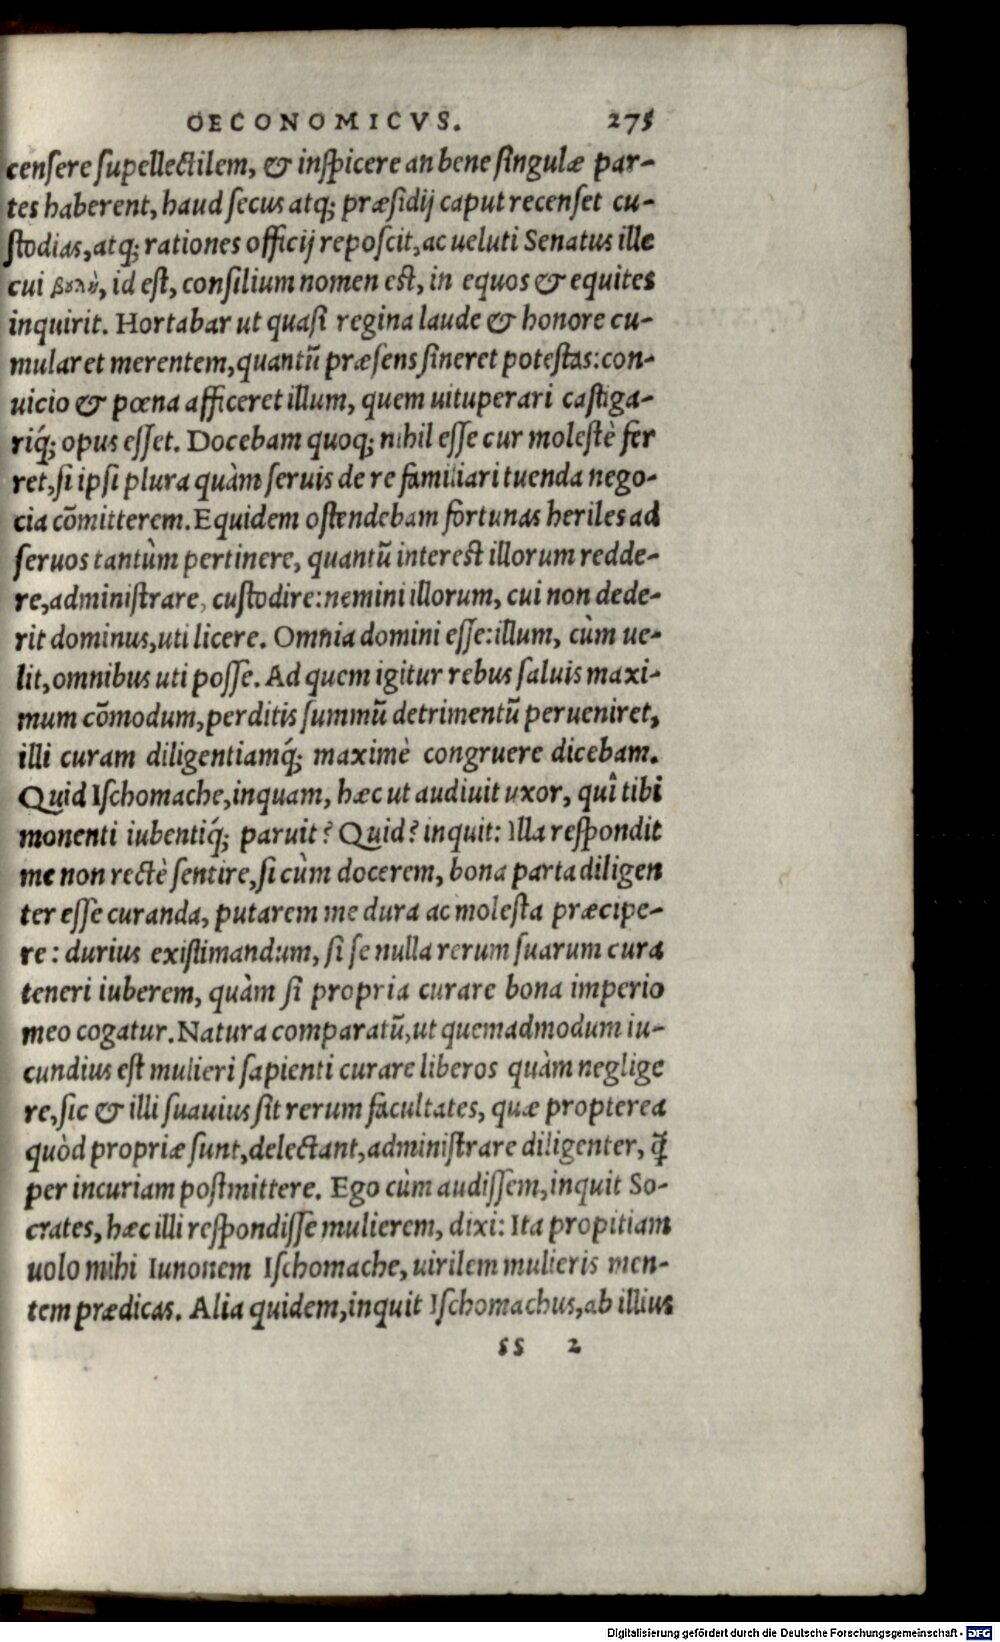 OECONOMICVS. 275
censere supellectilem, & inspicere an bene singulæ par-
tes haberent, haud secus atq; præsidij caput recenset cu-
stodias, atq; rationes officij reposcit, ac ueluti Senatus ille
cui βουλὴ, id est, consilium nomen est, in equos & equites
inquirit. Hortabar ut quasi regina laude & honore cu-
mularet merentem, quantũ præsens sineret potestas: con-
uicio & pœna afficeret illum, quem uituperari castiga-
riq́; opus esset. Docebam quoq; nihil esse cur molestè fer
ret, si ipsi plura quàm seruis de re familiari tuenda nego-
cia cõmitterem. Equidem ostendebam fortunas heriles ad
seruos tantùm pertinere, quantũ interest illorum redde-
re, administrare, custodire: nemini illorum, cui non dede-
rit dominus, uti licere. Omnia domini esse: illum, cùm ue-
lit, omnibus uti posse. Ad quem igitur rebus saluis maxi-
mum cõmodum, perditis summũ detrimentũ perueniret,
illi curam diligentiamq́; maximè congruere dicebam.
Quid Ischomache, inquam, hæc ut audiuit uxor, quî tibi
monenti iubentiq́; paruit? Quid? inquit: Illa respondit
me non rectè sentire, si cùm docerem, bona parta diligen
ter esse curanda, putarem me dura ac molesta præcipe-
re: durius existimandum, si se nulla rerum suarum cura
teneri iuberem, quàm si propria curare bona imperio
meo cogatur. Natura comparatũ, ut quemadmodum iu-
cundius est mulieri sapienti curare liberos quàm neglige
re, sic & illi suauius sit rerum facultates, quæ propterea
quòd propriæ sunt, delectant, administrare diligenter, q̃
per incuriam postmittere. Ego cùm audissem, inquit So-
crates, hæc illi respondisse mulierem, dixi: Ita propitiam
uolo mihi Iunonem Ischomache, uirilem mulieris men-
tem prædicas. Alia quidem, inquit Ischomachus, ab illius
ss 2
Digitalisierung gefördert durch die Deutsche Forschungsgemeinschaft - DFG